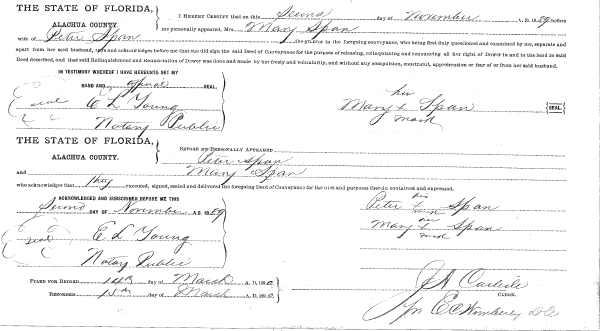 THE STATE OF FLORIDA,
ALACHUA COUNTY.
I HEREBY CERTIFY that on this Second day of November A. D. 1889 before
me personally appeared, Mrs. Mary Span
wife of Peter Span the grantor in the foregoing conveyance, who being first duly questioned and examined by me, separate and
apart from her said husband, says and acknowledges before me that she did sign the said Deed of Conveyance for the purpose of releasing, relinquishing and renouncing all her right of Dower in and to the land in said
Deed described, and that said Relinquishment and Renunciation of Dower was done and made by her freely and voluntarily, and without any compulsion, constraint, apprehension or fear of or from her said husband.
IN TESTIMONY WHEREOF I HAVE HEREUNTO SET MY
HAND AND official SEAL.
seal E L Young
Notary Public
her
Mary X Span SEAL.
mark
THE STATE OF FLORIDA,
ALACHUA COUNTY.
BEFORE ME PERSONALLY APPEARED
Peter Span
and Mary Span
who acknowledges that they executed, signed, sealed and delivered the foregoing Deed of Conveyance for the uses and purposes therein contained and expressed.
ACKNOWLEDGED AND SUBSCRIBED BEFORE ME THIS
Second DAY OF November A. D. 1889
seal E L Young
Notary Public
his
Peter X Span
mark
her
Mary X Span
mark
FILED FOR RECORD 14th day of March A. D. 1890
RECORDED 15th day of March A. D. 1890
J A Carlisle
CLERK.
E C Wimberly D C